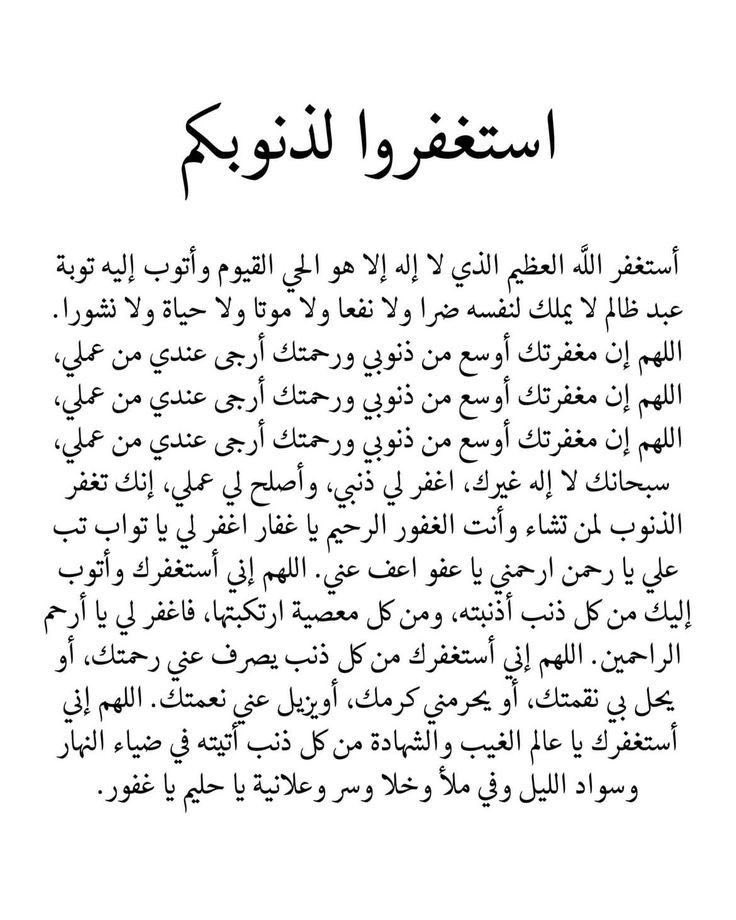 استغفروا لذنوبكم
أستغفر اللَّه العظيم الذي لا إله إلا هو الحي القيوم وأتوب إليه توبة
عبد ظالم لا يملك لنفسه ضرا ولا نفعا ولا موتا ولا حياة ولا نشورا.
اللهم إن مغفرتك أوسع من ذنوبي ورحمتك أرجى عندي من عملي،
اللهم إن مغفرتك أوسع من ذنوبي ورحمتك أرجى عندي من عملي،
اللهم إن مغفرتك أوسع من ذنوبي ورحمتك أرجى عندي من عملي،
سبحانك لا إله غيرك، اغفر لي ذنبي، وأصلح لي عملي، إنك تغفر
الذنوب لمن تشاء وأنت الغفور الرحيم يا غفار اغفر لي يا تواب تب
علي يا رحمن ارحمني يا عفو اعف عني. اللهم إني أستغفرك وأتوب
إليك من كل ذنب أذنبته، ومن كل معصية ارتكبتها، فاغفر لي يا أرحم
الراحمين. اللهم إني أستغفرك من كل ذنب يصرف عني رحمتك، أو
يحل بي نقمتك، أو يحرمني كرمك، أويزيل عني نعمتك. اللهم إني
أستغفرك يا عالم الغيب والشهادة من كل ذنب أتيته في ضياء النهار
وسواد الليل وفي ملأ وخلا وسر وعلانية يا حليم يا غفور.